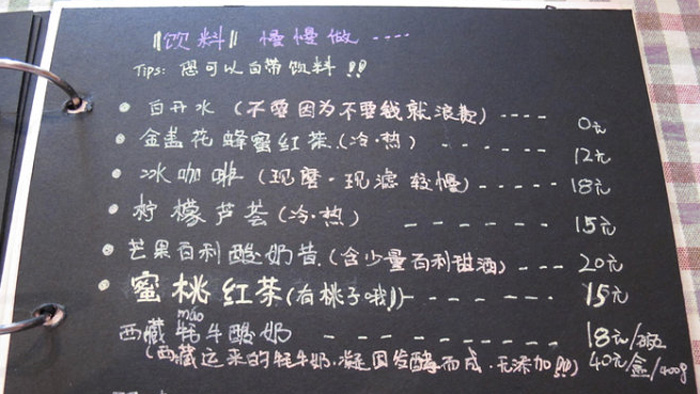 饮料 慢慢做 ----
Tips: 您可以自带饮料!!
白开水 (不要因为不要钱就浪费) ---- 0元
金盏花蜂蜜红茶 (冷·热) 12元
冰咖啡 (现磨·现滤较慢) ----- 18元
柠檬芦荟 (冷·热) ----- 15元
芒果百利酸奶昔 (含少量百利甜酒) --- 20元
蜜桃红茶 (有桃子哦!) ------ 15元
māo
西藏牦牛酸奶 ------- 18元/碗
(西藏运来的牦牛奶·凝固发酵而成·无添加!!!) 40元/盒/400g